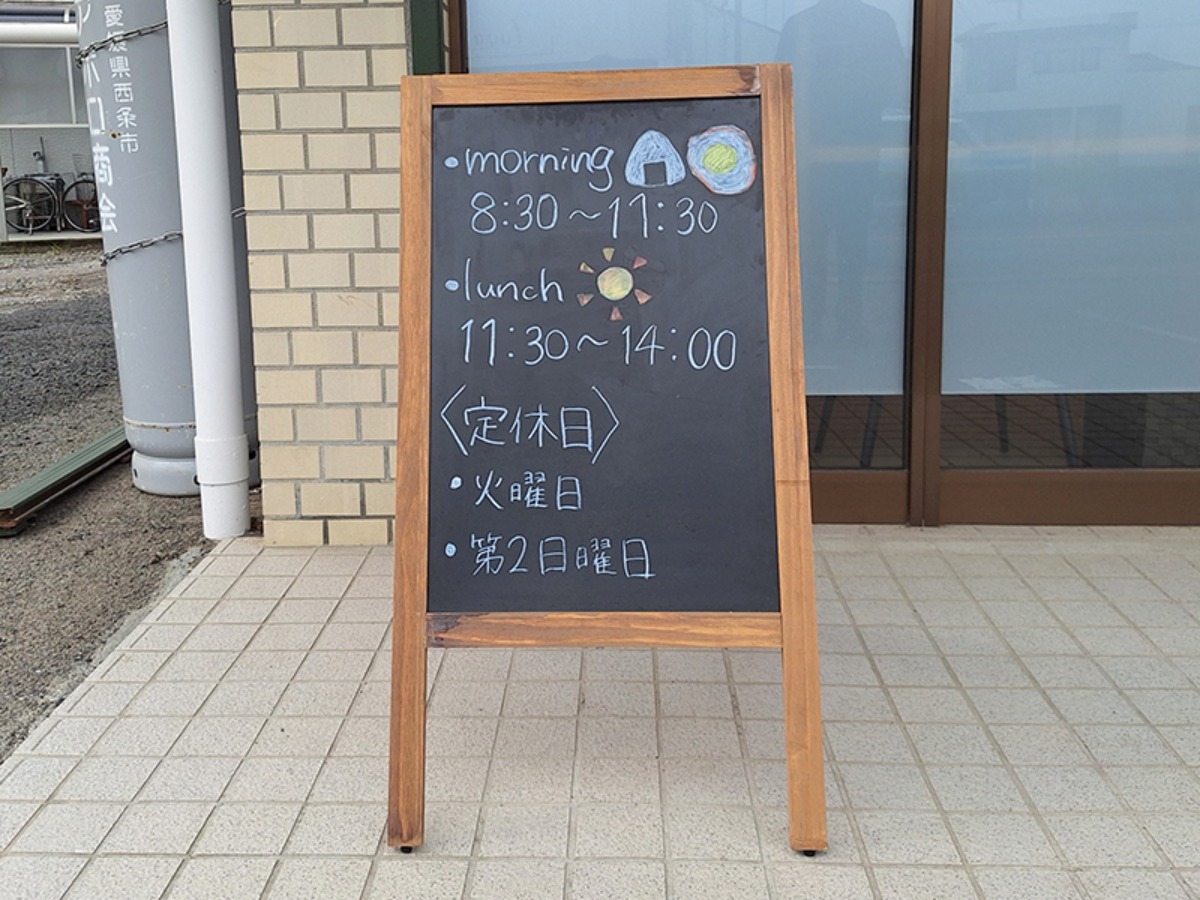 愛媛県西条市
ホロ商会
・morning
8:30～11:30
・lunch
11:30～14:00
〈定休日〉
・火曜日
・第2日曜日